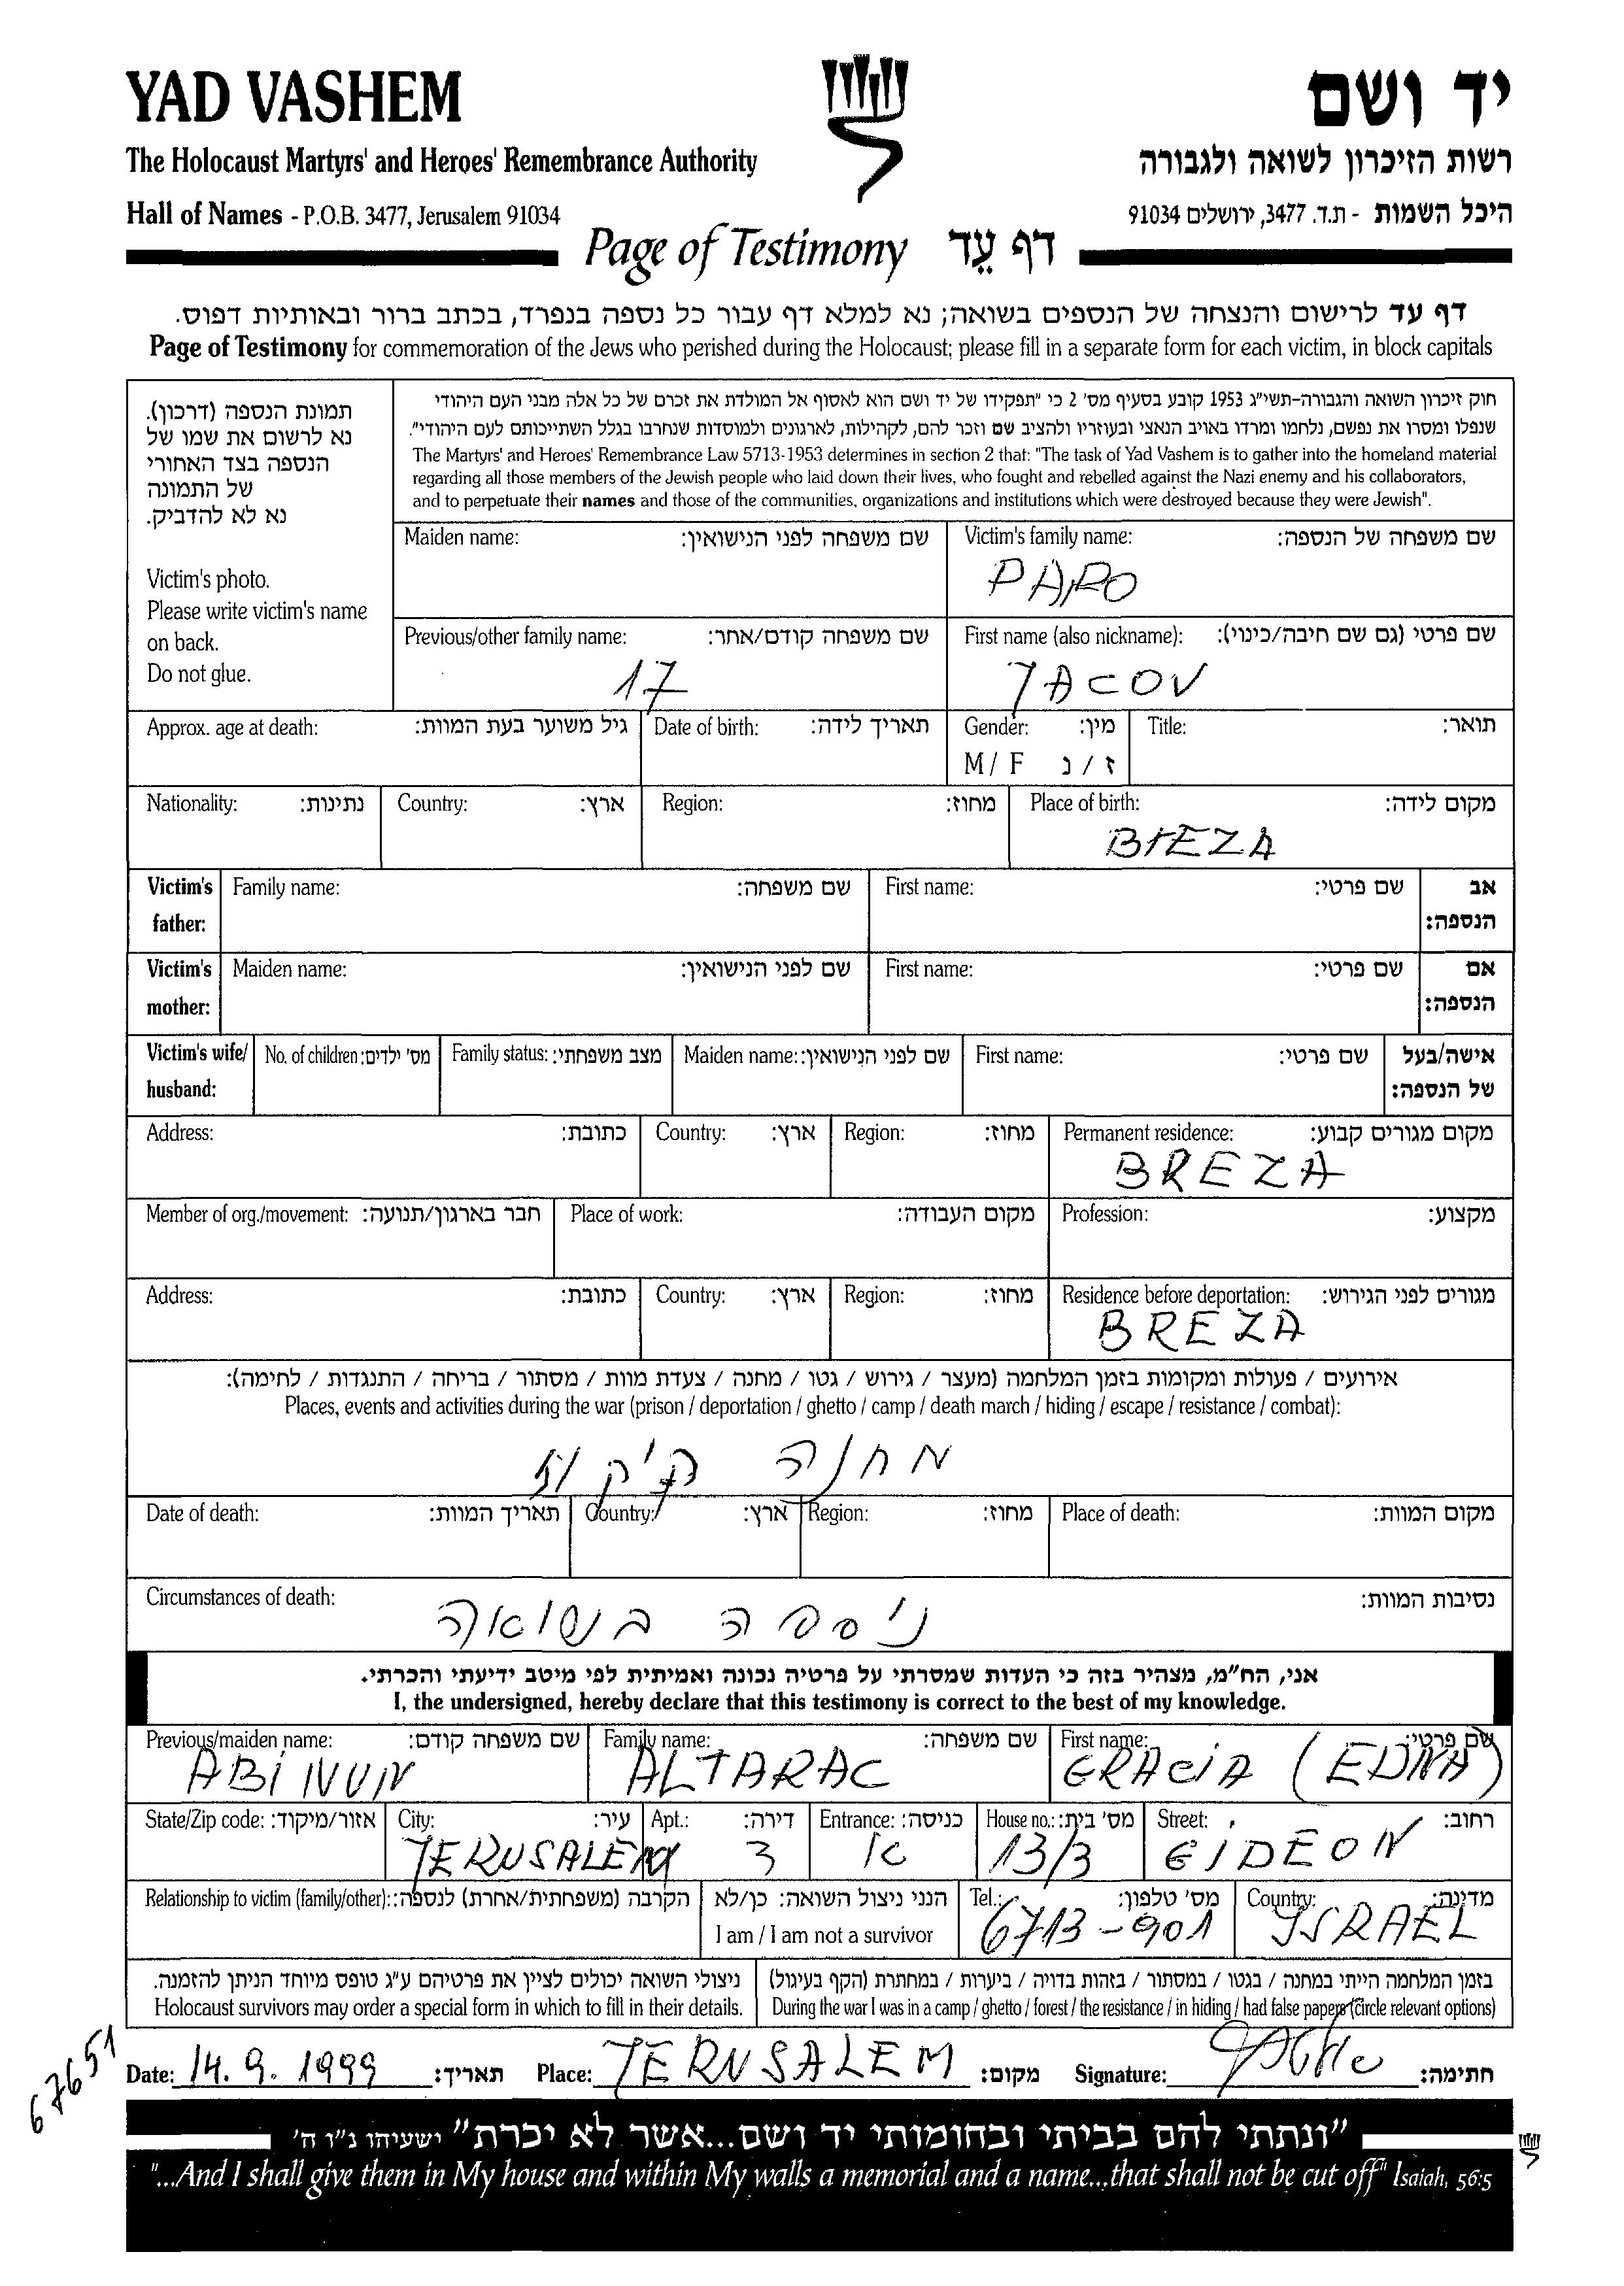 YAD VASHEM
יד ושם
The Holocaust Martyrs' and Heroes' Remembrance Authority
רשות הזיכרון לשואה ולגבורה
Hall of Names - P.O.B. 3477, Jerusalem 91034
היכל השמות - ת.ד. 3477, ירושלים 91034
Page of Testimony דף עֵד
דף עד לרישום והנצחה של הנספים בשואה; נא למלא דף עבור כל נספה בנפרד, בכתב ברור ובאותיות דפוס.
Page of Testimony for commemoration of the Jews who perished during the Holocaust; please fill in a separate form for each victim, in block capitals
תמונת הנספה (דרכון).
נא לרשום את שמו של
הנספה בצד האחורי
של התמונה
נא לא להדביק.
Victim's photo.
Please write victim's name
on back.
Do not glue.
חוק זיכרון השואה והגבורה-תשי"ג 1953 קובע בסעיף מס' 2 כי "תפקידו של יד ושם הוא לאסוף אל המולדת את זכרם של כל אלה מבני העם היהודי
שנפלו ומסרו את נפשם, נלחמו ומרדו באויב הנאצי ובעוזריו ולהציב שם וזכר להם, לקהילות, לארגונים ולמוסדות שנחרבו בגלל השתייכותם לעם היהודי".
The Martyrs' and Heroes' Remembrance Law 5713-1953 determines in section 2 that: "The task of Yad Vashem is to gather into the homeland material
regarding all those members of the Jewish people who laid down their lives, who fought and rebelled against the Nazi enemy and his collaborators,
and to perpetuate their names and those of the communities, organizations and institutions which were destroyed because they were Jewish".
Maiden name: שם משפחה לפני הנישואין:
Victim's family name: שם משפחה של הנספה:
PAPO
Previous/other family name: שם משפחה קודם/אחר:
17
First name (also nickname): שם פרטי (גם שם חיבה/כינוי):
JACOV
Approx. age at death: גיל משוער בעת המוות:
Date of birth: תאריך לידה:
Gender: מין:
M / F ז / נ
Title: תואר:
Nationality: נתינות:
Country: ארץ:
Region: מחוז:
Place of birth: מקום לידה:
BREZA
Victim's father: Family name: שם משפחה: First name: שם פרטי: אב הנספה:
Victim's mother: Maiden name: שם לפני הנישואין: First name: שם פרטי: אם הנספה:
Victim's wife/ husband: No. of children: מס' ילדים: Family status: מצב משפחתי: Maiden name: שם לפני הנישואין: First name: שם פרטי: אישה/בעל של הנספה:
Address: כתובת: Country: ארץ: Region: מחוז: Permanent residence: מקום מגורים קבוע:
BREZA
Member of org./movement: חבר בארגון/תנועה: Place of work: מקום העבודה: Profession: מקצוע:
Address: כתובת: Country: ארץ: Region: מחוז: Residence before deportation: מגורים לפני הגירוש:
BREZA
אירועים / פעולות ומקומות בזמן המלחמה (מעצר / גירוש / גטו / מחנה / צעדת מוות / מסתור / בריחה / התנגדות / לחימה):
Places, events and activities during the war (prison / deportation / ghetto / camp / death march / hiding / escape / resistance / combat):
מחנה
Date of death: תאריך המוות: Country: ארץ: Region: מחוז: Place of death: מקום המוות:
Circumstances of death: נסיבות המוות:
ניספה בשואה
אני, הח"מ, מצהיר בזה כי העדות שמסרתי על פרטיה נכונה ואמיתית לפי מיטב ידיעתי והכרתי.
I, the undersigned, hereby declare that this testimony is correct to the best of my knowledge.
Previous/maiden name: שם משפחה קודם: Family name: שם משפחה: First name: שם פרטי:
ABINUN ALTARAC GRACIA (EDNA)
State/Zip code: אזור/מיקוד: City: עיר: Apt.: דירה: Entrance: כניסה: House no.: מס' בית: Street: רחוב:
JERUSALEM 3 א 13/3 GIDEON
Relationship to victim (family/other): הקרבה (משפחתית/אחרת) לנספה: הנני ניצול השואה: כן/לא Tel.: מס' טלפון: Country: מדינה:
I am / I am not a survivor 6713-901 ISRAEL
ניצולי השואה יכולים לציין את פרטיהם ע"ג טופס מיוחד הניתן להזמנה.
Holocaust survivors may order a special form in which to fill in their details.
בזמן המלחמה הייתי במחנה / בגטו / במסתור / בזהות בדויה / ביערות / במחתרת (הקף בעיגול)
During the war I was in a camp / ghetto / forest / the resistance / in hiding / had false papers (circle relevant options)
67651
Date: 14.9.1999 תאריך: Place: JERUSALEM מקום: Signature: חתימה:
"ונתתי להם בביתי ובחומותי יד ושם...אשר לא יכרת" ישעיהו נ"ו ה'
"...And I shall give them in My house and within My walls a memorial and a name...that shall not be cut off" Isaiah, 56:5